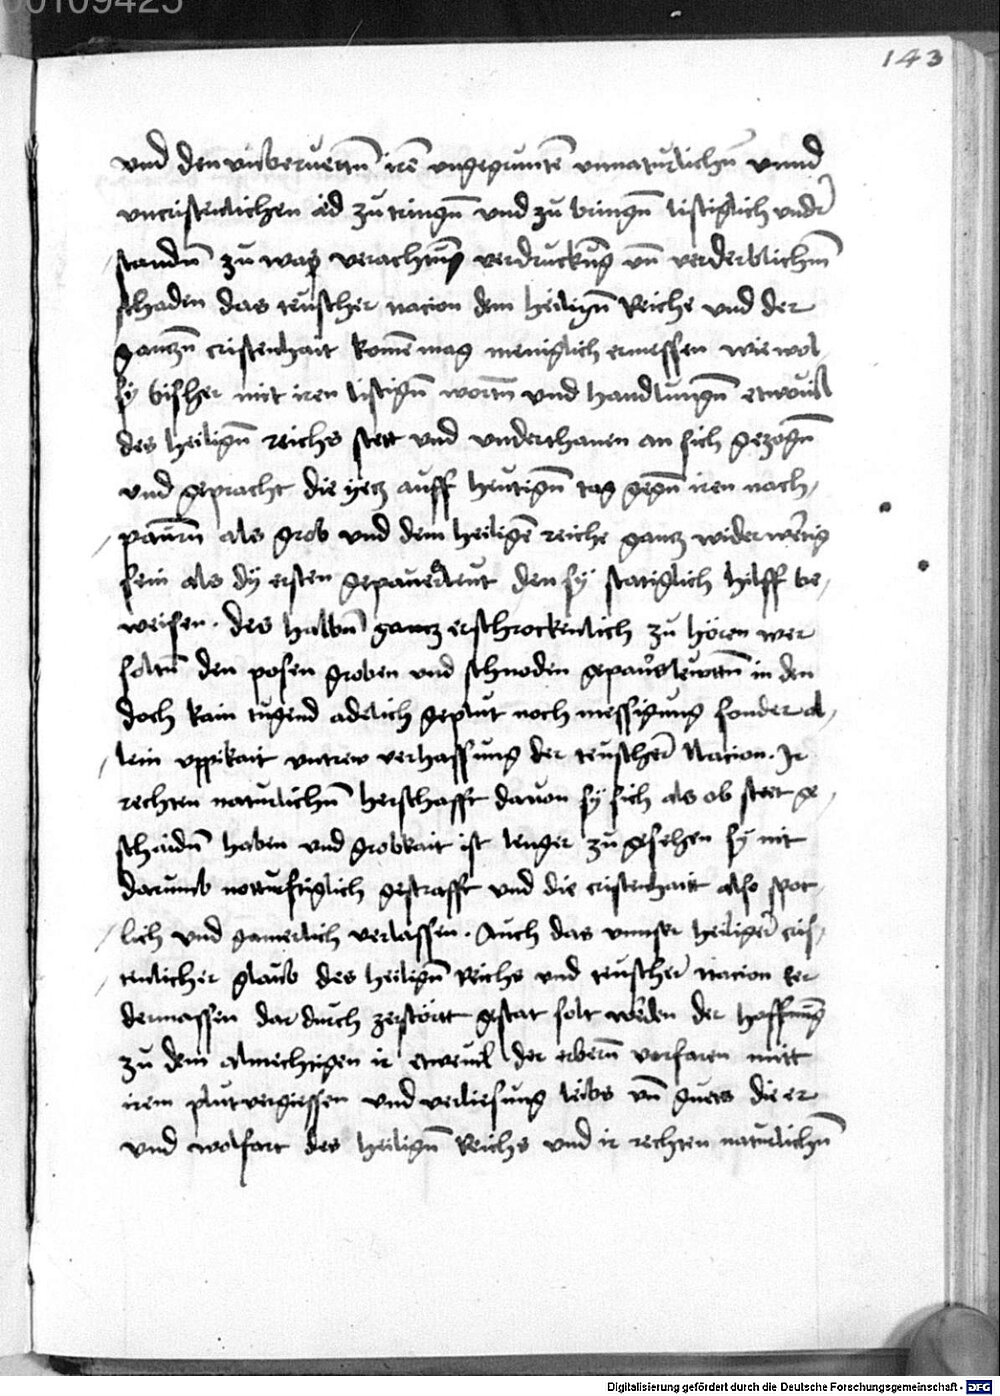 00109425
143
vnd den vnberuertn̄ irē vngegruntē vnnaturlichn̄ vnnd
vncristenlichen aid zu tringn̄ vnd zu bringn̄ listiglich vnder
standn̄ zu was verachtung verdruckūg vn̄ verderblichm̄
schaden das teutscher nacion dem heilign̄ Reiche vnd der
gantzn̄ cristenhait komē mag meniglich ermessen wie wol
sy bisher mit iren listign̄ wortn̄ vnd handlungn̄ etwouil
des heilign̄ reichs stett vnd vnderthanen an sich gezogn̄
vnd gepracht die yetz auff heutign̄ tag gegn̄ iren nach
paurn̄ als grob vnd dem heiligē reiche gantz widerwertig
sein als dy ersten gepauerleut den sy statiglich hilff be
weisen. des halbn̄ gantz erschrockenlich zu hören wer
soltn̄ den posen groben vnd schnoden gepaurslewttn̄ in den
doch kain tugend adelich geplut noch messigung sonder al
lein vppikait vntrew verhassung der teutscher Nacion. Ir
rechten naturlichn̄ herschafft dauon sy sich als ob stett ge
schaidn̄ haben vnd grobkait ist lenger zu gesehen sy nit
darumb notturftiglich gestrafft vnd die cristenhait also spot
lich vnd gamerlich verlassen. Auch das vnnser heiliger cris
tenlicher glaub des heilign̄ Reichs vnd teutscher nacion eer
dermassen dar durch zerstört gestat solt werden der hoffnūg
zu dem almechtigen ir etweuil der erbern̄ vorfaren mitt
irem plutvergiessen vnd verliesung leibs vn̄ guets die er
vnd wolfart des heilign̄ Reichs vnd ir rechten naturlichn̄
Digitalisierung gefördert durch die Deutsche Forschungsgemeinschaft - DFG